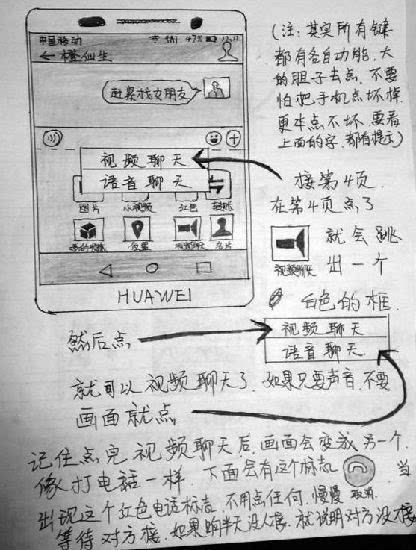 中国移动 47% 12:17
← 橙仙生
赶紧找女朋友
视频聊天
语音聊天
图片 小视频 红包 转账
我的收藏 位置 视频聊天 名片
HUAWEI
(注:其实所有键
都有各自功能,大
的胆子去点,不要
怕把手机点坏掉,
更本点不坏,要看
上面的字,都有提示)
接第4页.
在第4页点了
视频聊天
就会跳
出一个
白色的框.
视频聊天
语音聊天
然后点
就可以视频聊天了.如果只要声音,不要
画面就点
记住点完视频聊天后,画面会变成另一个,
像打电话一样,下面会有这个标志 取消.当
出现这个红色电话标志,不用点任何,慢慢
等待对方接.如果响半天没人接,就说明对方没接